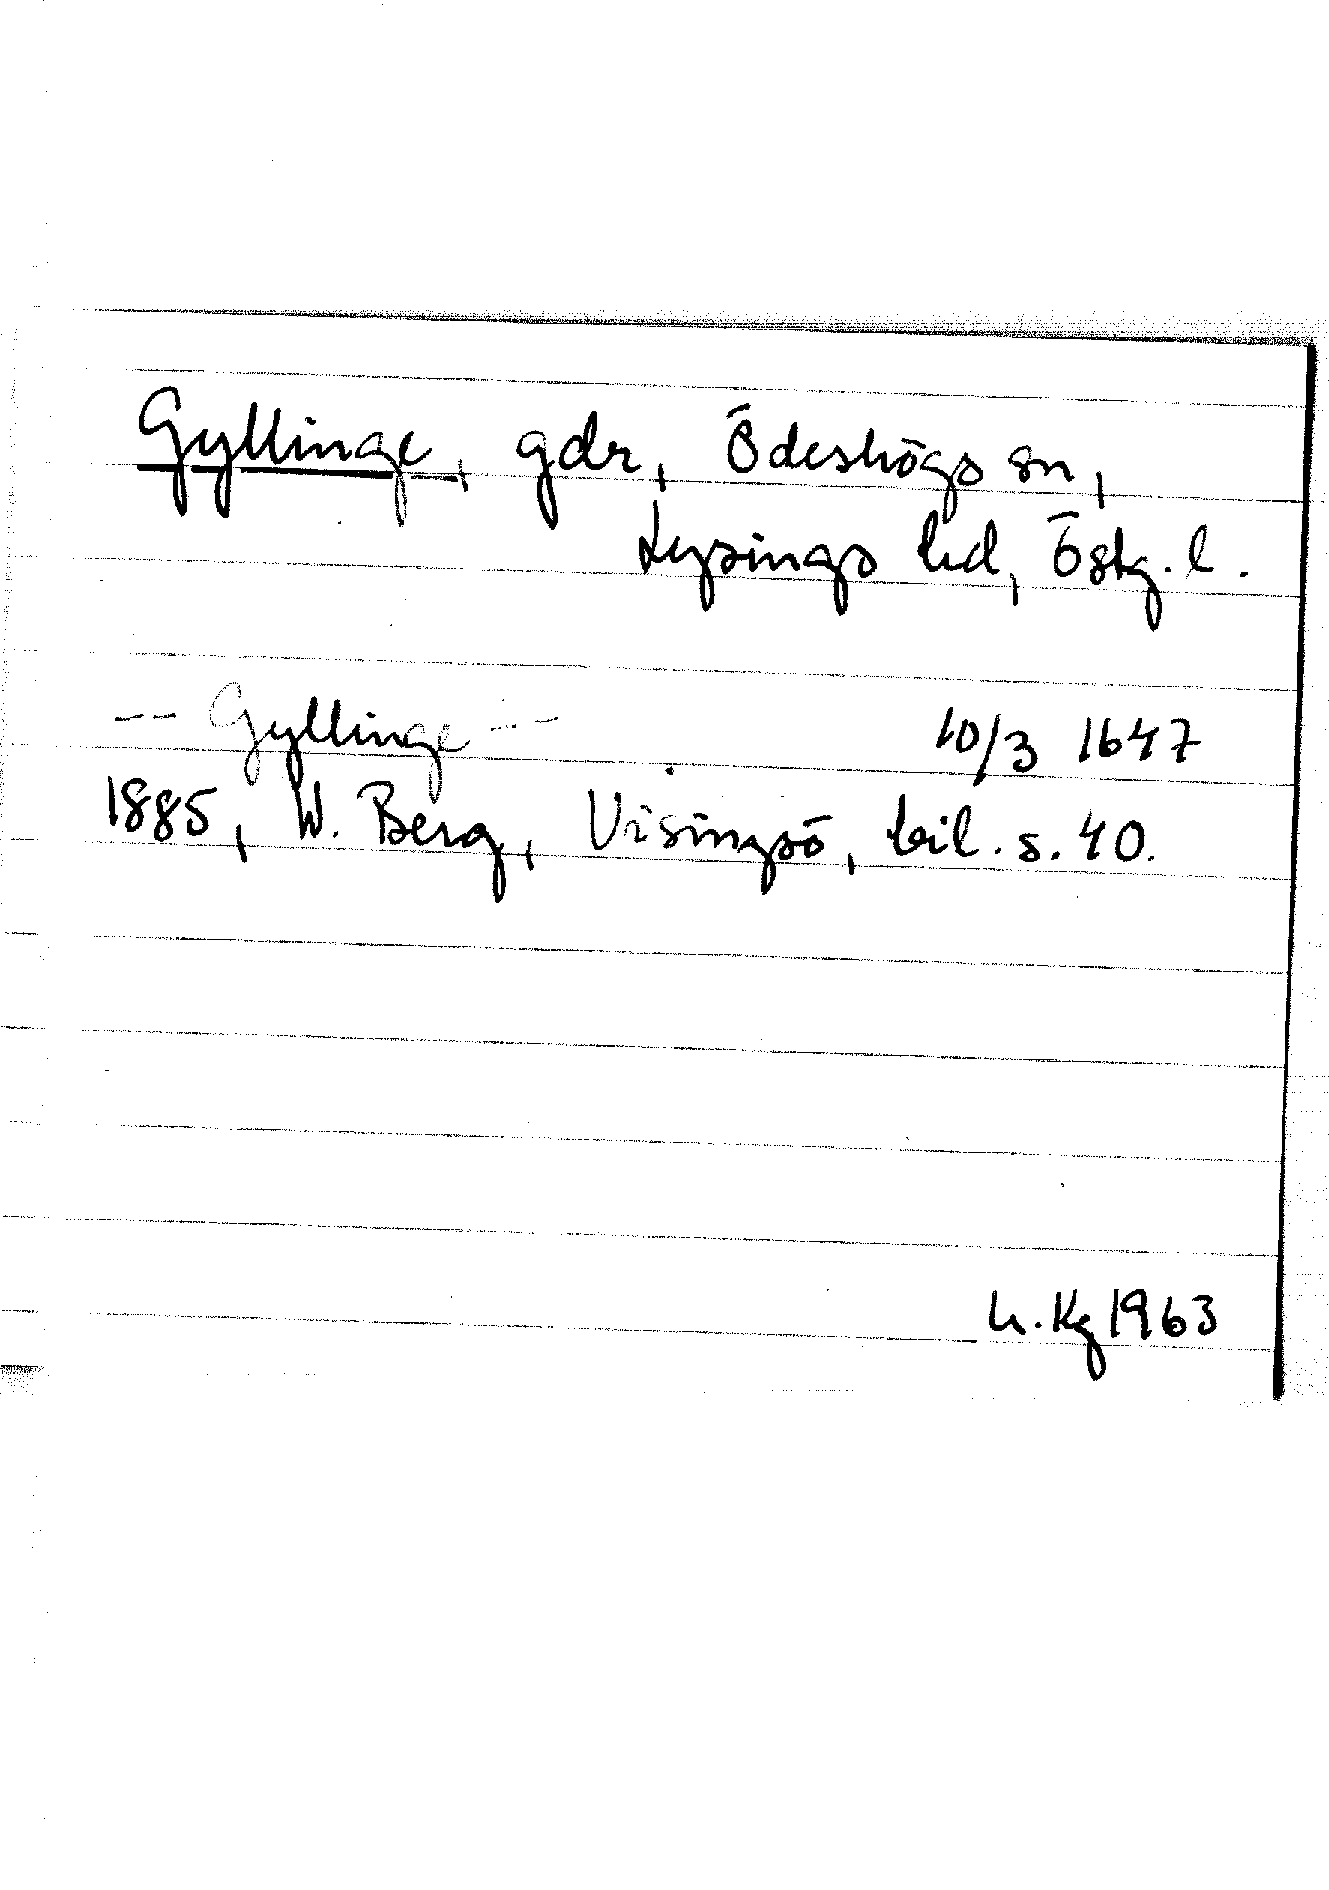 Gyllinge, gdr, Ödeshögs sn,
Lysings hd, Östg. l.
-- Gyllinge -- 10/3 1647
1885, W. Berg, Visingsö, bil. s. 40.
H. Kg 1963